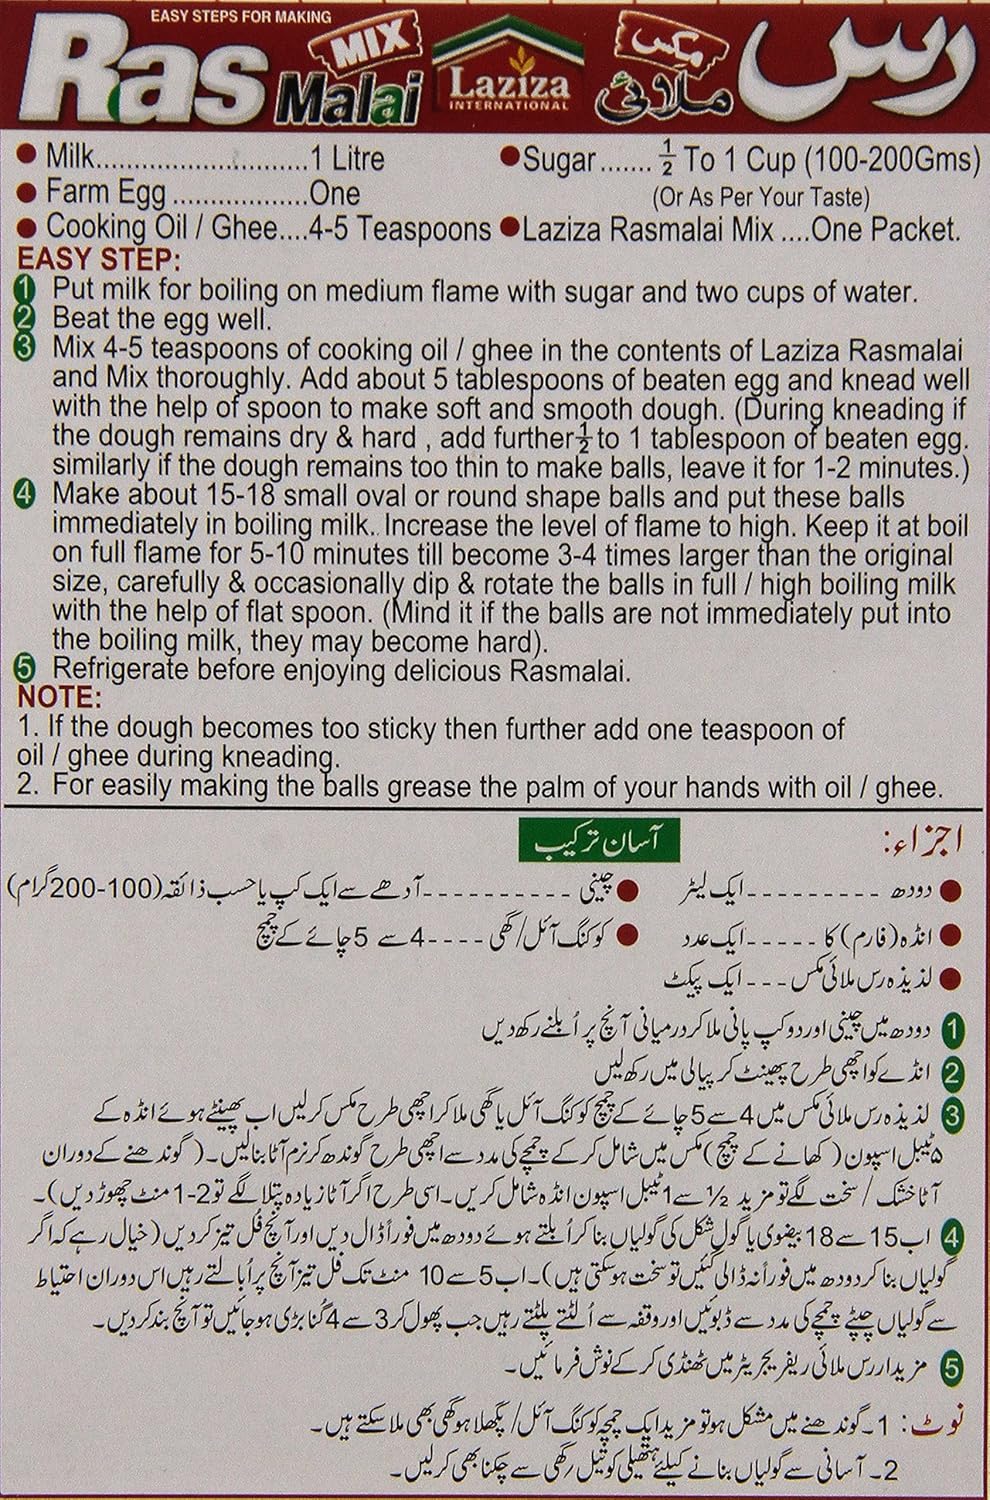 EASY STEPS FOR MAKING
Ras Malai MIX
Laziza
INTERNATIONAL
رس ملائی مکس
● Milk..............................1 Litre
● Sugar....... ½ To 1 Cup (100-200Gms)
(Or As Per Your Taste)
● Farm Egg ..................One
● Cooking Oil / Ghee....4-5 Teaspoons
● Laziza Rasmalai Mix ....One Packet.
EASY STEP:
1 Put milk for boiling on medium flame with sugar and two cups of water.
2 Beat the egg well.
3 Mix 4-5 teaspoons of cooking oil / ghee in the contents of Laziza Rasmalai
and Mix thoroughly. Add about 5 tablespoons of beaten egg and knead well
with the help of spoon to make soft and smooth dough. (During kneading if
the dough remains dry & hard , add further ½ to 1 tablespoon of beaten egg.
similarly if the dough remains too thin to make balls, leave it for 1-2 minutes.)
4 Make about 15-18 small oval or round shape balls and put these balls
immediately in boiling milk. Increase the level of flame to high. Keep it at boil
on full flame for 5-10 minutes till become 3-4 times larger than the original
size, carefully & occasionally dip & rotate the balls in full / high boiling milk
with the help of flat spoon. (Mind it if the balls are not immediately put into
the boiling milk, they may become hard).
5 Refrigerate before enjoying delicious Rasmalai.
NOTE:
1. If the dough becomes too sticky then further add one teaspoon of
oil / ghee during kneading.
2. For easily making the balls grease the palm of your hands with oil / ghee.
اجزاء:
آسان ترکیب
● دودھ ---------ایک لیٹر
● چینی ----------آدھے سے ایک کپ یا حسب ذائقہ (100-200 گرام)
● انڈہ (فارم) کا -----ایک عدد
● کوکنگ آئل/گھی ----4 سے 5 چائے کے چمچ
● لذیذہ رس ملائی مکس ---ایک پیکٹ
1 دودھ میں چینی اور دو کپ پانی ملا کر درمیانی آنچ پر اُبلنے رکھ دیں
2 انڈے کو اچھی طرح پھینٹ کر پیالی میں رکھ لیں
3 لذیذہ رس ملائی مکس میں 4 سے 5 چائے کے چمچ کوکنگ آئل یا گھی ملا کر اچھی طرح مکس کر لیں اب پھینٹے ہوئے انڈہ کے
۵ ٹیبل اسپون (کھانے کے چمچ) مکس میں شامل کر کے چمچے کی مدد سے اچھی طرح گوندھ کر نرم آٹا بنا لیں۔ (گوندھنے کے دوران
آٹا خشک / سخت لگے تو مزید ½ سے 1 ٹیبل اسپون انڈہ شامل کریں۔ اسی طرح اگر آٹا زیادہ پتلا لگے تو 2-1 منٹ چھوڑ دیں)۔
4 اب 15 سے 18 بیضوی یا گول شکل کی گولیاں بنا کر اُبلتے ہوئے دودھ میں فوراً ڈال دیں اور آنچ فُل تیز کر دیں (خیال رہے کہ اگر
گولیاں بنا کر دودھ میں فوراً نہ ڈالی گئیں تو سخت ہو سکتی ہیں)۔ اب 5 سے 10 منٹ تک فل تیز آنچ پر اُبالتے رہیں اس دوران احتیاط
سے گولیاں چپٹے چمچے کی مدد سے ڈبوئیں اور وقفہ سے اُلٹتے پلٹتے رہیں جب پھول کر 3 سے 4 گنا بڑی ہو جائیں تو آنچ بند کر دیں۔
5 مزیدار رس ملائی ریفریجریٹر میں ٹھنڈی کر کے نوش فرمائیں۔
نوٹ: 1۔ گوندھنے میں مشکل ہو تو مزید ایک چمچہ کوکنگ آئل/ پگھلا ہو گھی بھی ملا سکتے ہیں۔
2۔ آسانی سے گولیاں بنانے کیلئے ہتھیلی کو تیل / گھی سے چکنا بھی کر لیں۔